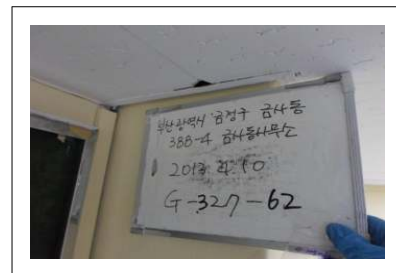 부산광역시 금정구 금사동
388-4 금사동사무소
2013. 4. 10
G-327-62